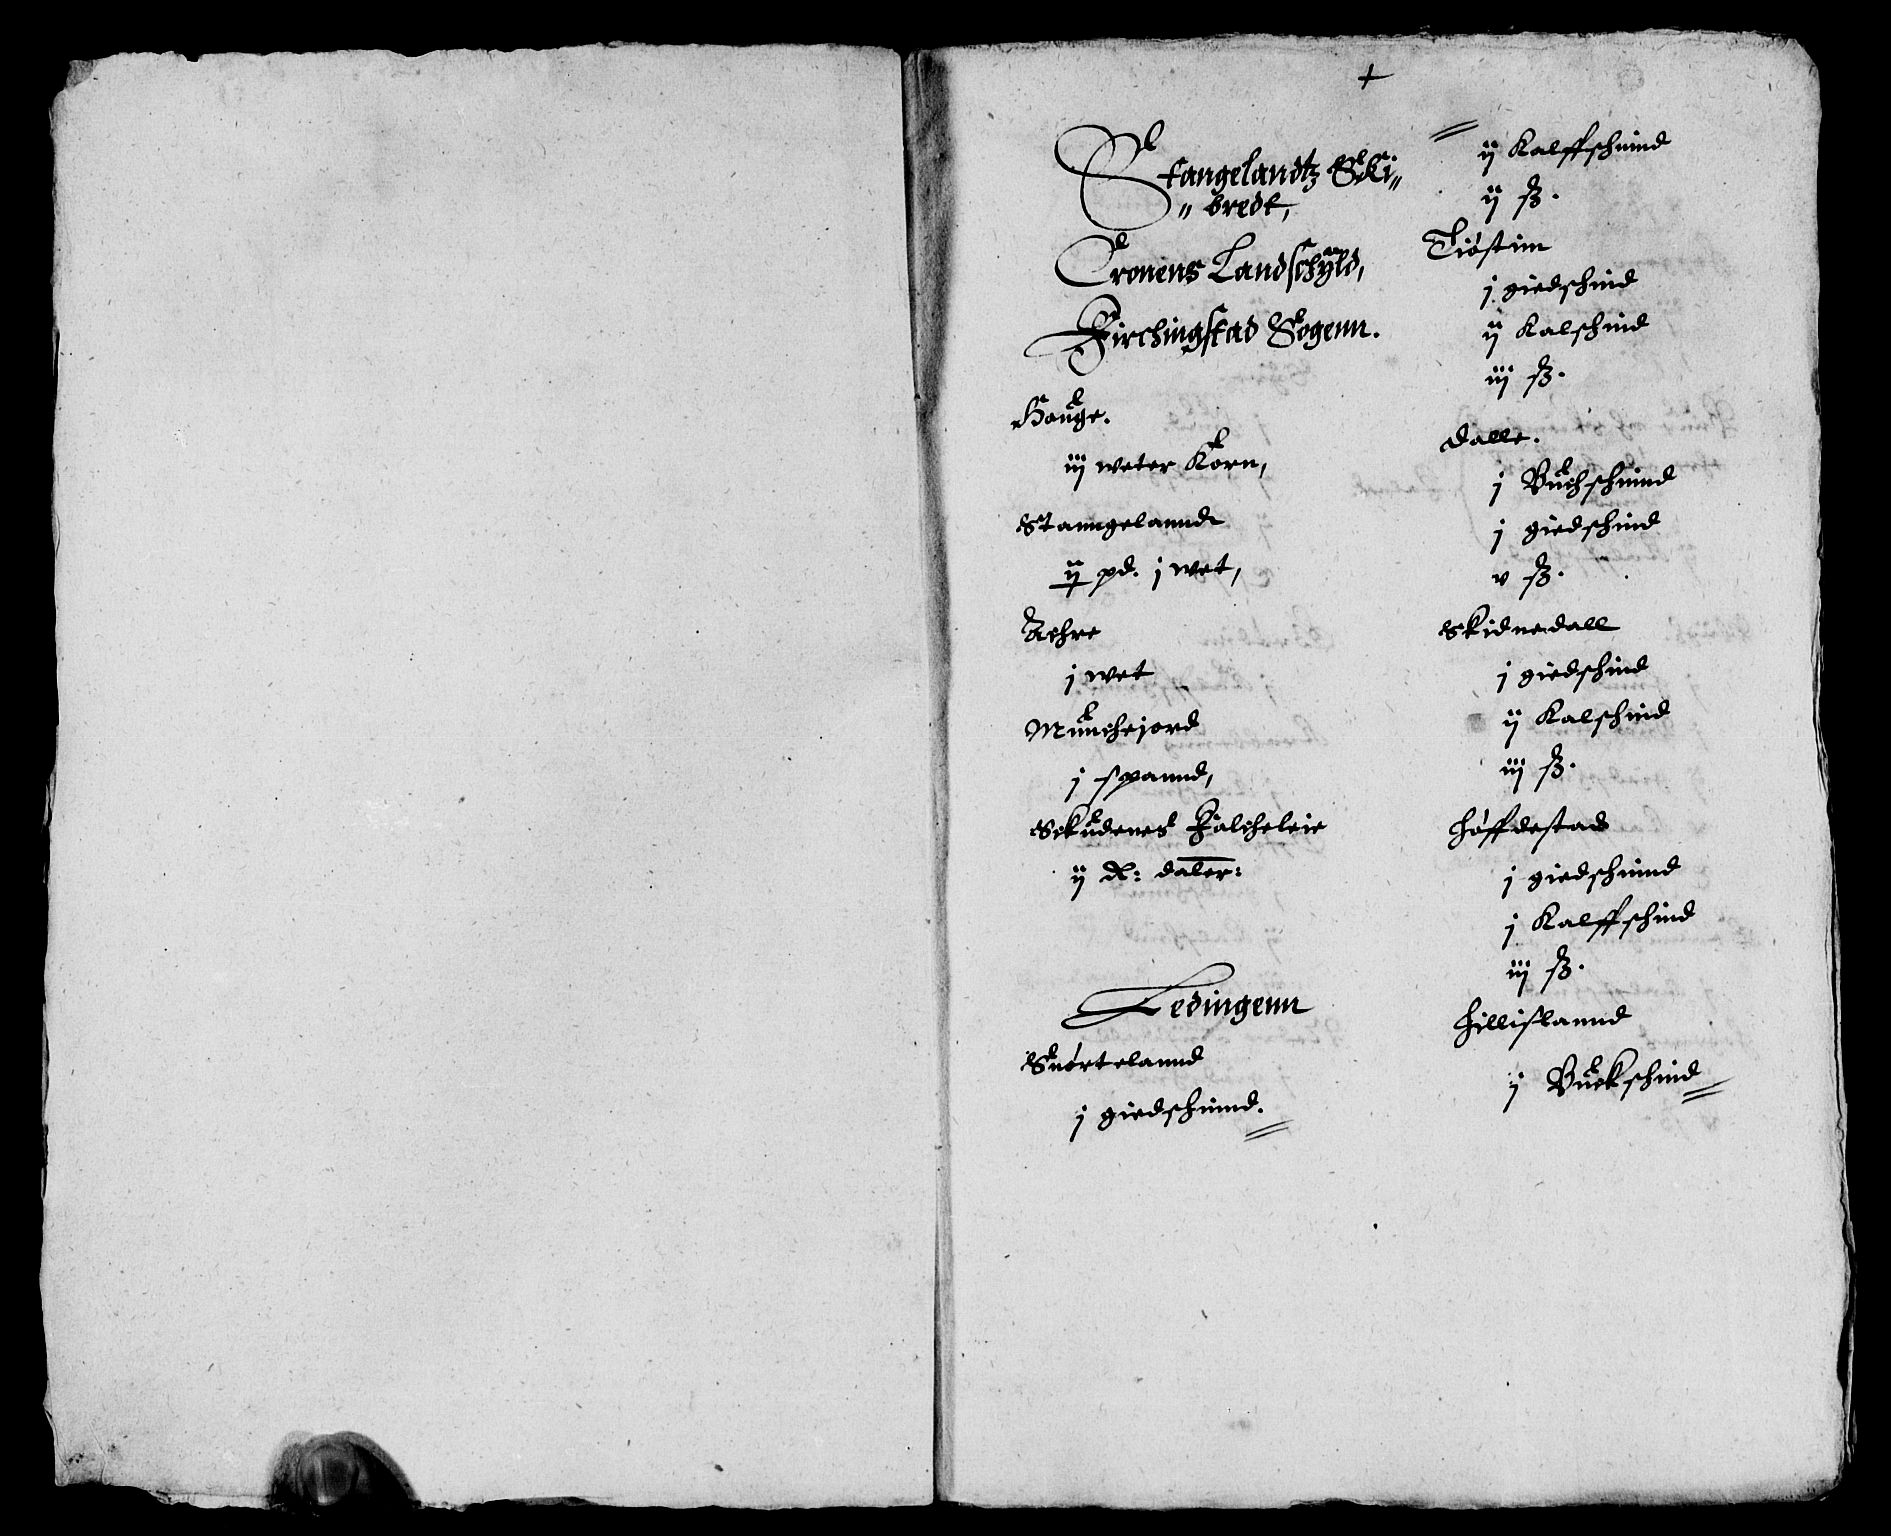 +
Stangelandtz Ski„
„ bredt,
Cronens Landschÿld,
Firchingstad Sogenn.
Hauge.
iij weter Korn,
Stanngelanndt
ij pd. j wet,
Aehre
j wet
Munchejord
j spannd,
Skudenes Falcheleie
ij R: daler:
Ledingenn
Snørtelannd
j giedschinnd.
ij Kalffschinnd
ij ß.
Tiøstim
j giedschind
ij Kalschind
iij ß.
Dalle.
j Buchschinnd
j giedschind
v ß.
Skidnedall
j giedschind
ij Kalschind
iij ß.
Høffdestad
j giedschinnd
j Kalffschind
iij ß.
Hillislannd
j Buckschind